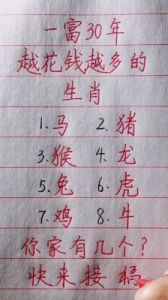 一富30年
越花钱越多的
生肖
1.马 2.猪
3.猴 4.龙
5.兔 6.虎
7.鸡 8.牛
你家有几个?
快来接福